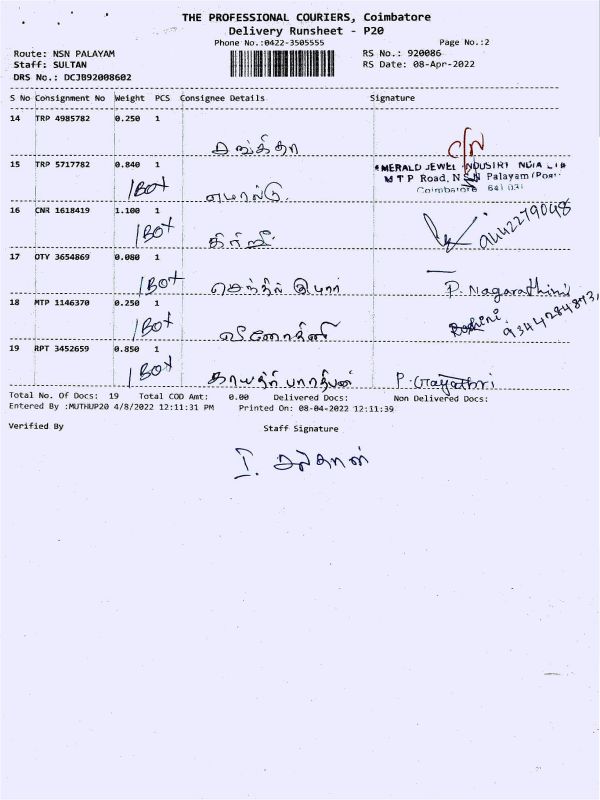 THE PROFESSIONAL COURIERS, Coimbatore
Delivery Runsheet - P20
Phone No.:0422-3505555 Page No.:2
Route: NSN PALAYAM RS No.: 920086
Staff: SULTAN RS Date: 08-Apr-2022
DRS No.: DCJB92008602
S No Consignment No Weight PCS Consignee Details Signature
14 TRP 4985782 0.250 1
15 TRP 5717782 0.840 1
EMERALD JEWEL INDUSTRY INDIA LTD
M T P Road, N S N Palayam (Post)
Coimbatore 641 031
1 Box எமரால்டு.
16 CNR 1618419 1.100 1
1 Box 9442279048
17 OTY 3654869 0.080 1
1 Box P. Nagarathini
18 MTP 1146370 0.250 1
1 Box வினோதினி 9344284873
19 RPT 3452659 0.850 1
1 Box காயத்ரி பாரதிபன் P. Gayathri
Total No. Of Docs: 19 Total COD Amt: 0.00 Delivered Docs: Non Delivered Docs:
Entered By :MUTHUP20 4/8/2022 12:11:31 PM Printed On: 08-04-2022 12:11:39
Verified By Staff Signature
I. சுல்தான்